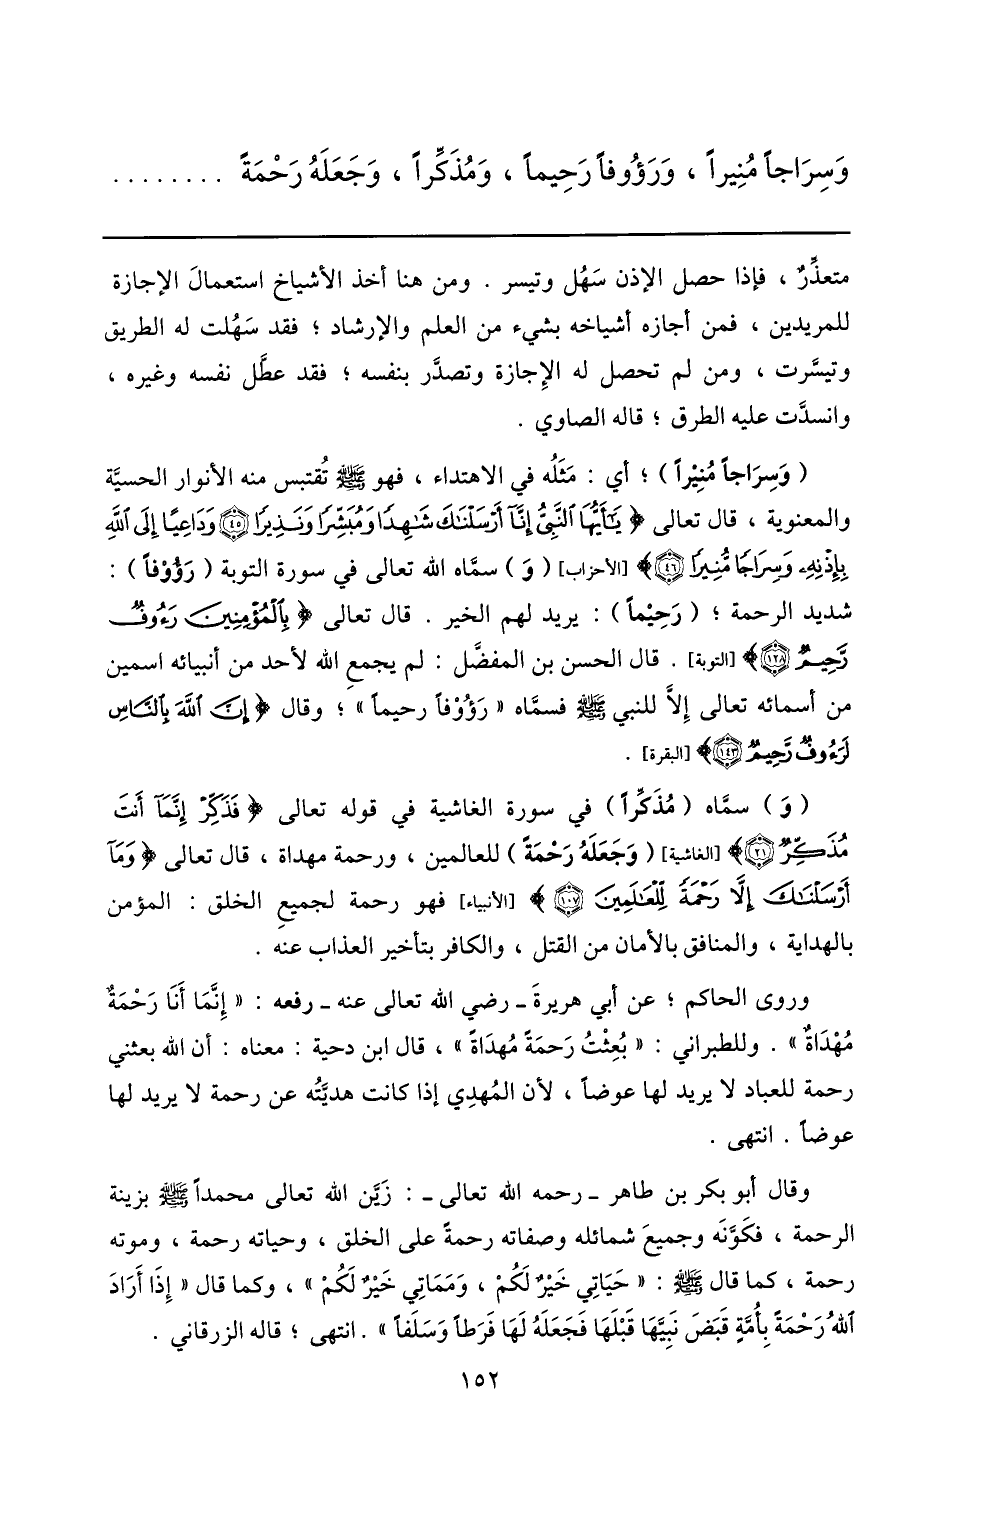 وَسِرَاجاً مُنِيراً ، وَرَؤُوفاً رَحِيماً ، وَمُذَكِّراً ، وَجَعَلَهُ رَحْمَةً ........
متعذِّرٌ ، فإذا حصل الإذن سَهُل وتيسر . ومن هنا أخذ الأشياخ استعمالَ الإجازة
للمريدين ، فمن أجازه أشياخه بشيء من العلم والإرشاد ؛ فقد سَهُلت له الطريق
وتيسَّرت ، ومن لم تحصل له الإجازة وتصدَّر بنفسه ؛ فقد عطَّل نفسه وغيره ،
وانسدَّت عليه الطرق ؛ قاله الصاوي .
( وَسِرَاجاً مُنِيْراً ) ؛ أي : مَثَلُه في الاهتداء ، فهو ﷺ تُقتبس منه الأنوار الحسيَّة
والمعنوية ، قال تعالى ﴿ يَٰٓأَيُّهَا ٱلنَّبِيُّ إِنَّآ أَرْسَلْنَٰكَ شَٰهِدًا وَمُبَشِّرًا وَنَذِيرًا ٤٥ وَدَاعِيًا إِلَى ٱللَّهِ
بِإِذْنِهِۦ وَسِرَاجًا مُّنِيرًا ٤٦ ﴾ [الأحزاب] ( وَ ) سمَّاه الله تعالى في سورة التوبة ( رَؤُوْفاً ) :
شديد الرحمة ؛ ( رَحِيْماً ) : يريد لهم الخير . قال تعالى ﴿ بِٱلْمُؤْمِنِينَ رَءُوفٌ
رَّحِيمٌ ١٢٨ ﴾ [التوبة] . قال الحسن بن المفضَّل : لم يجمعِ الله لأحد من أنبيائه اسمين
من أسمائه تعالى إلاَّ للنبي ﷺ فسمَّاه « رَؤُوْفاً رحيماً » ؛ وقال ﴿ إِنَّ ٱللَّهَ بِٱلنَّاسِ
لَرَءُوفٌ رَّحِيمٌ ١٤٣ ﴾ [البقرة] .
( وَ ) سمَّاه ( مُذَكِّراً ) في سورة الغاشية في قوله تعالى ﴿ فَذَكِّرْ إِنَّمَآ أَنتَ
مُذَكِّرٌ ٢١ ﴾ [الغاشية] ( وَجَعَلَهُ رَحْمَةً ) للعالمين ، ورحمة مهداة ، قال تعالى ﴿ وَمَآ
أَرْسَلْنَٰكَ إِلَّا رَحْمَةً لِّلْعَٰلَمِينَ ١٠٧ ﴾ [الأنبياء] فهو رحمة لجميعِ الخلق : المؤمن
بالهداية ، والمنافق بالأمان من القتل ، والكافر بتأخير العذاب عنه .
وروى الحاكم ؛ عن أبي هريرةَ ـ رضي الله تعالى عنه ـ رفعه : « إِنَّمَا أَنَا رَحْمَةٌ
مُهْدَاةٌ » . وللطبراني : « بُعِثْتُ رَحمَةً مُهدَاةً » ، قال ابن دحية : معناه : أن الله بعثني
رحمة للعباد لا يريد لها عوضاً ، لأن المُهدِي إذا كانت هديَّتُه عن رحمة لا يريد لها
عوضاً . انتهى .
وقال أبو بكر بن طاهر ـ رحمه الله تعالى ـ : زَيَّن الله تعالى محمداً ﷺ بزينة
الرحمة ، فكَوَّنَه وجميعَ شمائله وصفاته رحمةً على الخلق ، وحياته رحمة ، وموته
رحمة ، كما قال ﷺ : « حَيَاتِي خَيْرٌ لَكُمْ ، وَمَمَاتِي خَيْرٌ لَكُمْ » ، وكما قال « إِذَا أَرَادَ
ٱللهُ رَحْمَةً بِأُمَّةٍ قَبَضَ نَبِيَّهَا قَبْلَهَا فَجَعَلَهُ لَهَا فَرَطاً وَسَلَفاً » . انتهى ؛ قاله الزرقاني .
١٥٢